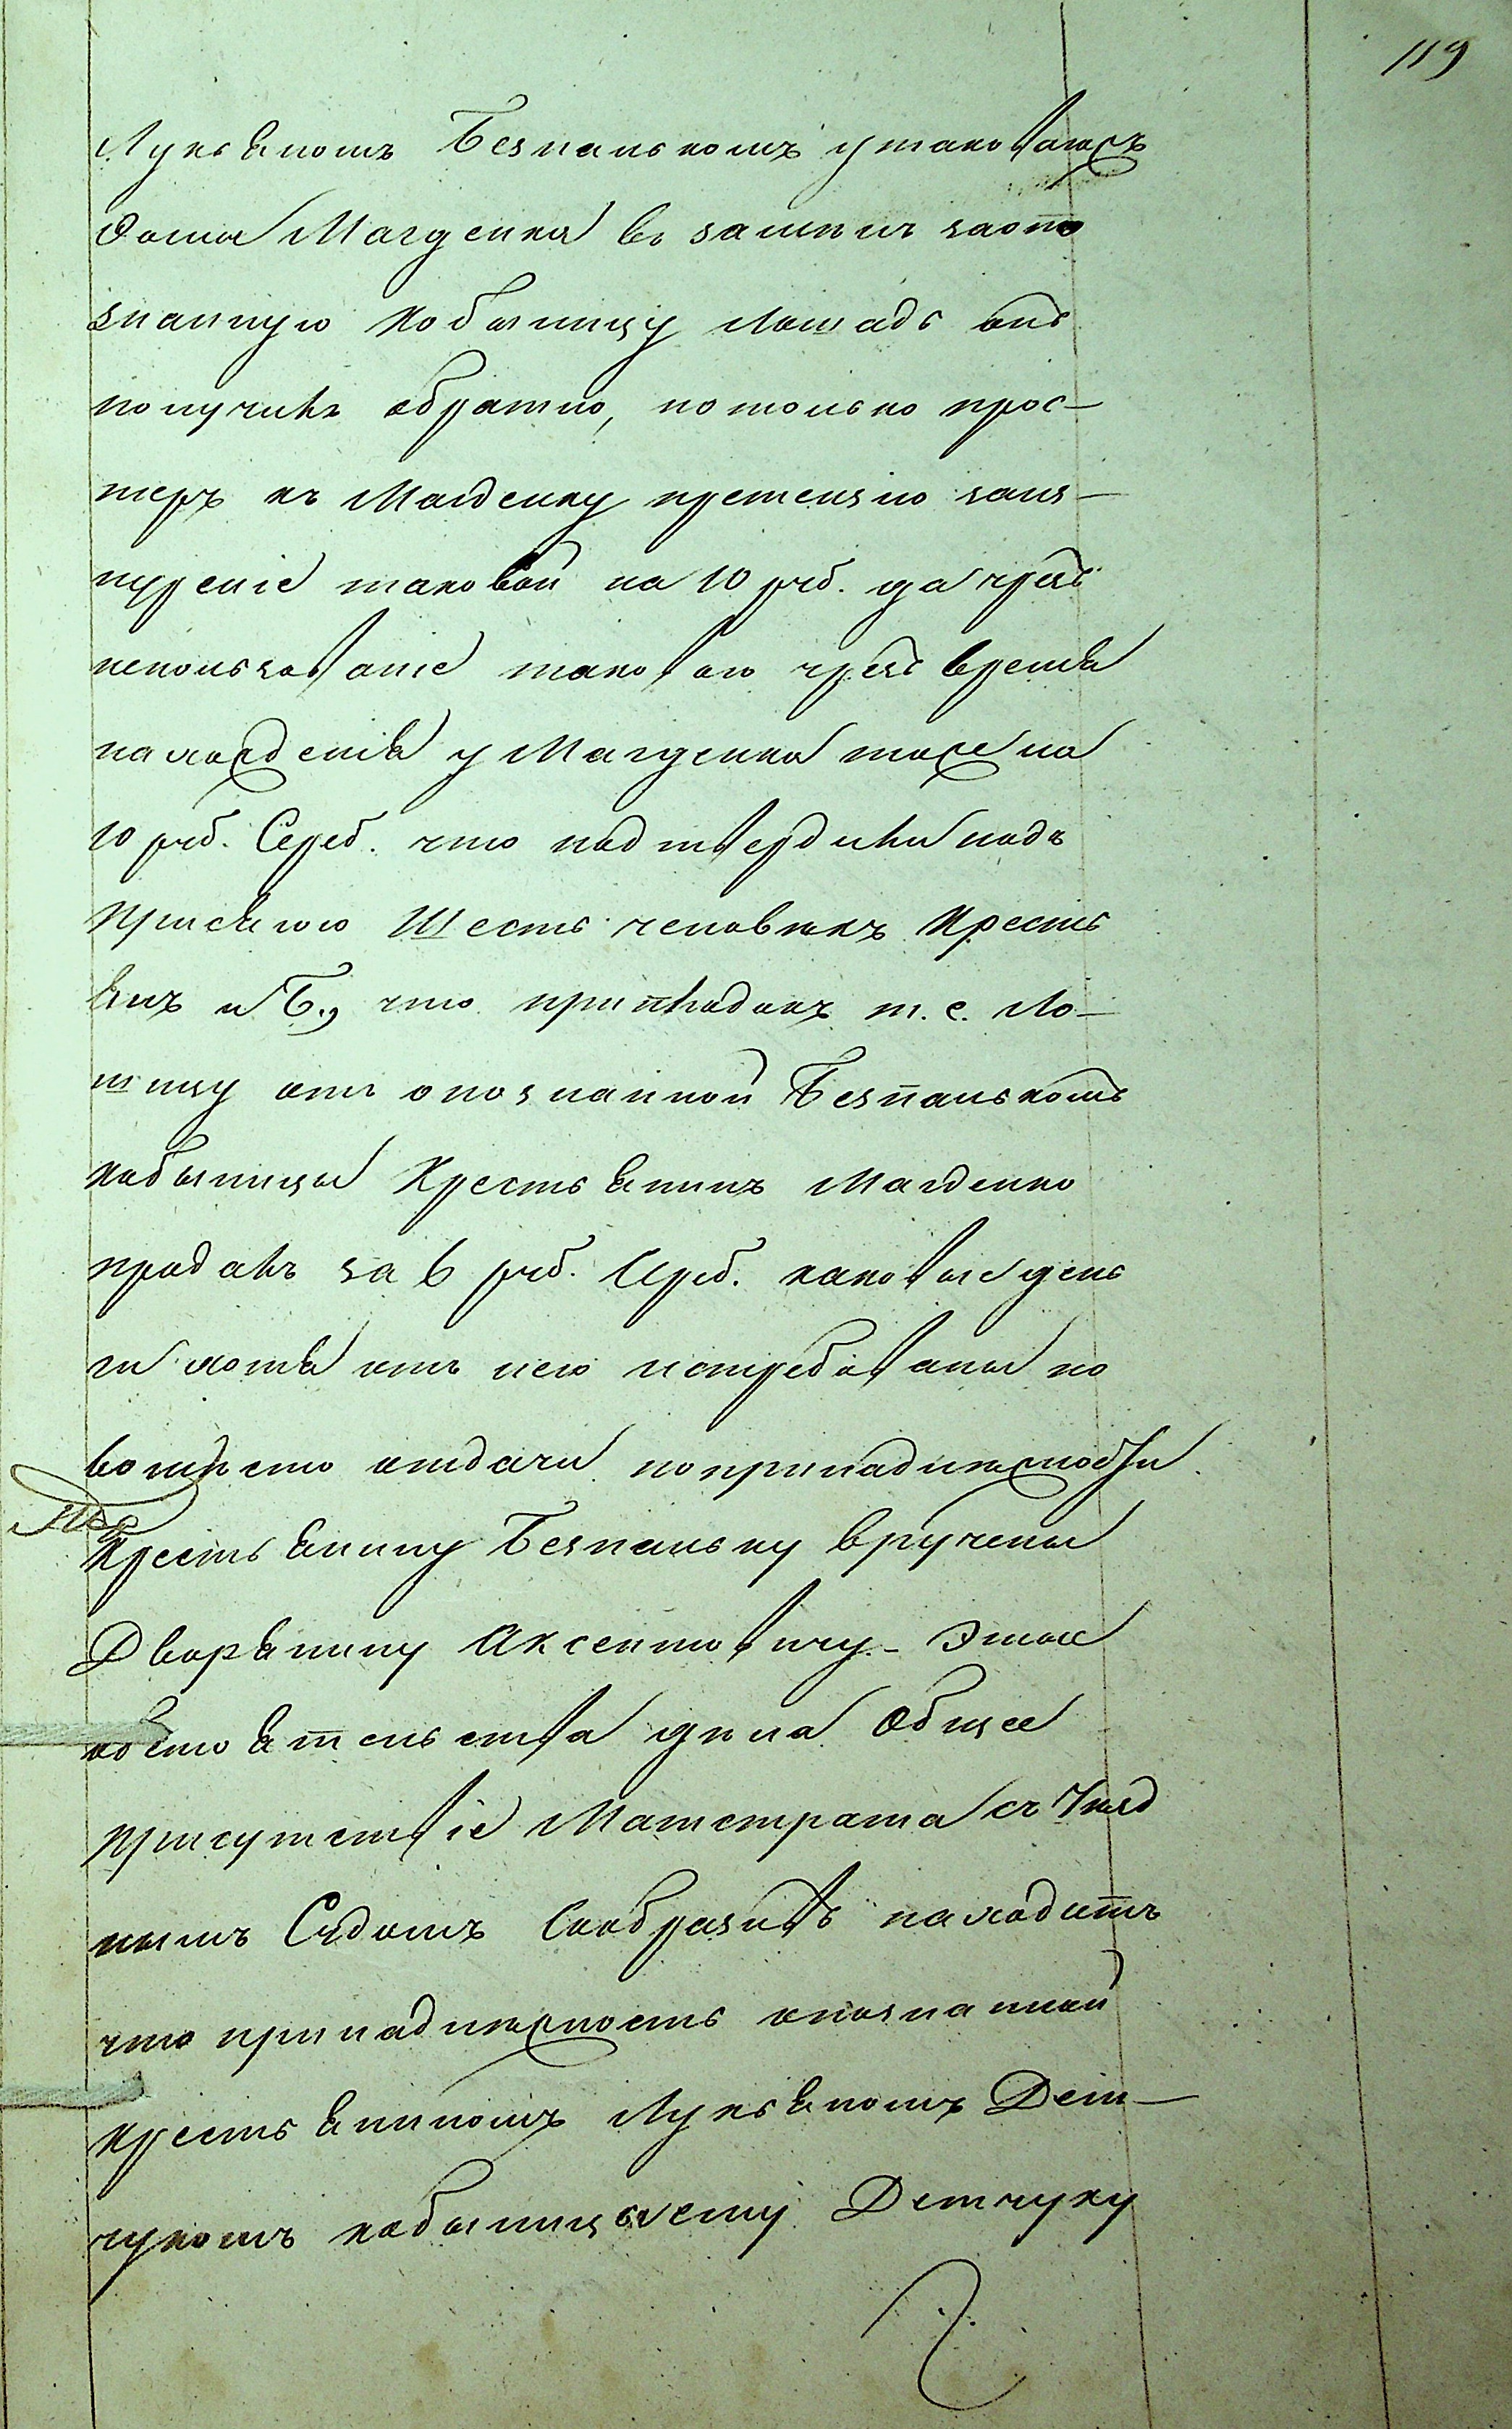 119
Лукьяномъ Безпалькомъ у таковагожъ
Фомы Магденка въ замѣнъ заопо
знанную кобылицу лошадь онъ
получилъ обратно, но только прос-
теръ къ Магденку претензію за из-
нуреніе таковой на 10 руб. да чрезъ
непользованіе таковою чрезъ время
нахожденія у Магденка тоже на
10 руб. Сереб. что подтвердили подъ
присягою Шесть человѣкъ Кресть
янъ и Б., что приплодокъ т. е. Ло-
шицу отъ опознанной Безпалькомъ
кобылицы Крестьянинъ Магденко
продалъ за 6 руб. Сереб. каковые день
ги хотя отъ него истребованы но
вомѣсто отдачи попринадлежности
Крестьянину Безпальку вручены
Дворянину Аксентовичу. – Этѣ
обстоятельства дѣла Общее
Присутствіе Магистрата съ Уѣзд
нымъ Судомъ Сообразивъ находитъ
что принадлежность опознанной
Крестьяниномъ Лукьяномъ Дет-
чукомъ кобылицы ему Детчуку